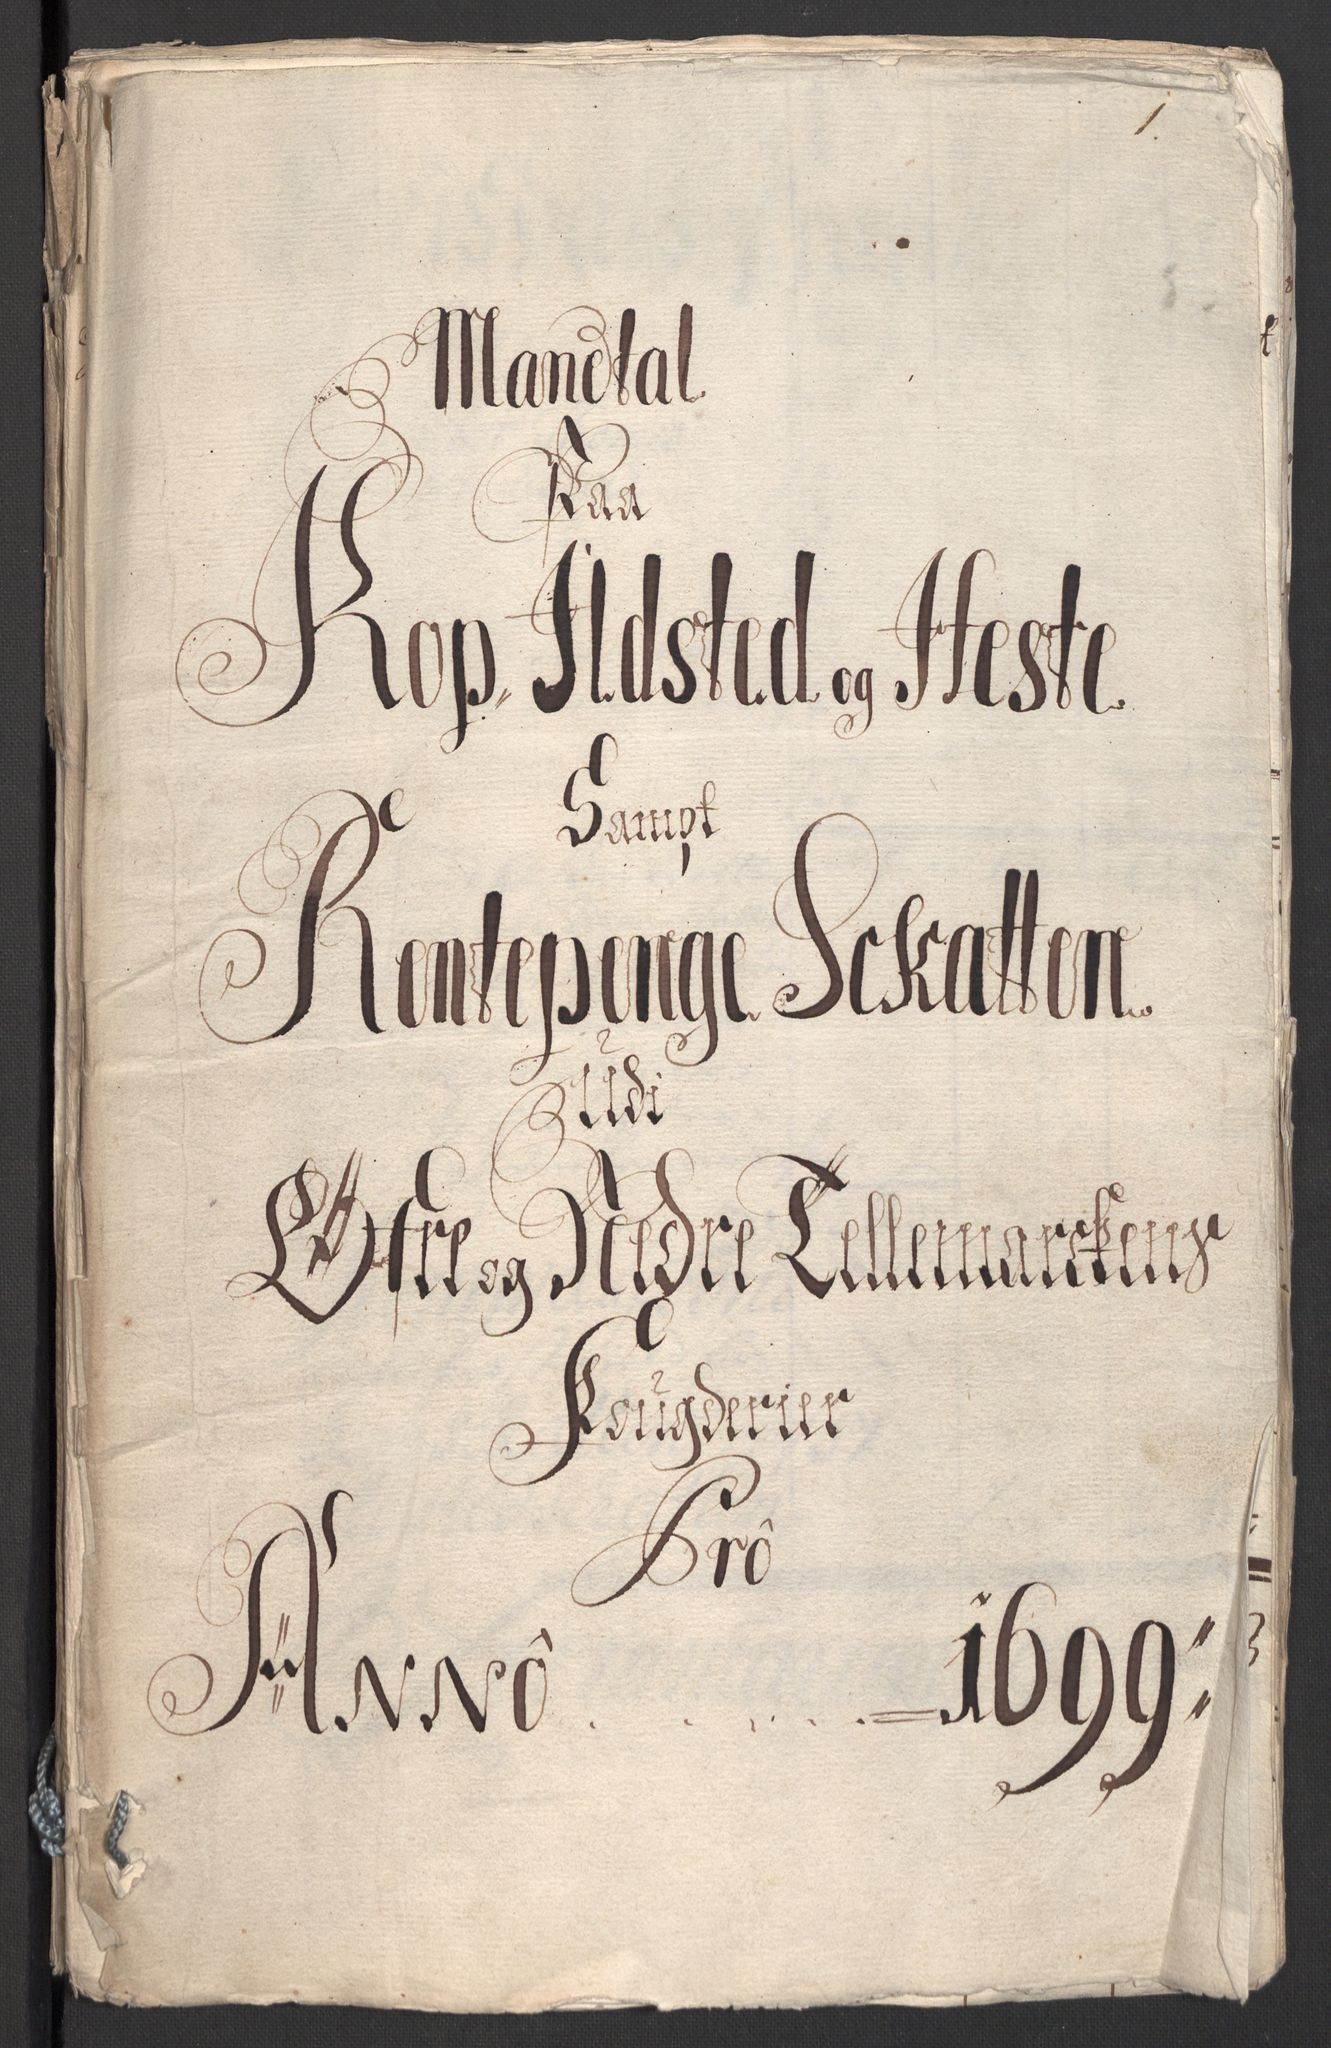 1.
Mandtal
Paa
Kop, Ildsted og Heste
Sampt
Rentepenge Skatten
Udi
Øfre og Nedre Tellemarckens
Fougderier
Prô
Annô . . . . . = 1699: